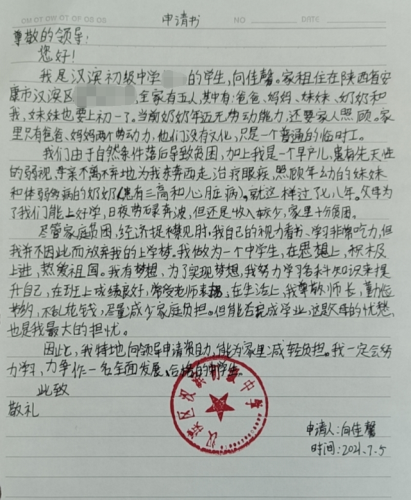 申请书
NO
DATE
尊敬的领导:
您好!
我是汉滨初级中学 的学生,向佳馨。家租住在陕西省安
康市汉滨区 全家有五人,其中有:爸爸、妈妈、妹妹、奶奶和
我,妹妹也要上初一了。当前奶奶年迈无劳动能力,还要家人照顾。家
里只有爸爸、妈妈两个劳动力,他们没有文化,只是一个普通的临时工。
我们由于自然条件落后导致贫困,加上我是一个早产儿,患有先天性
的弱视,牵来不离不弃地为我东奔西走,治疗眼疾,照顾年幼的妹妹
和体弱多病的奶奶(患有三高和心脏病)。就这样过了七、八年。父母为
了我们能上好学,日夜劳碌奔波,但还是收入较少,家里十分贫困。
尽管家庭贫困,经济捉襟见肘,我自己的视力看书、学习非常吃力,但
我并不因此而放弃我的上学梦。我做为一个中学生,在思想上,积极
上进,热爱祖国。我有梦想,为了实现梦想,我努力学习各科知识来提
升自己,在班上成绩良好,常受老师表扬,在生活上,我尊敬师长,勤俭
节约,不乱花钱,尽量减少家庭负担。但能否完成学业,这是父母的忧愁,
也是我最大的担忧。
因此,我特地向领导申请资助,能为家里减轻负担。我一定会努
力学习,力争作一名全面发展、合格的中学生。
此致
敬礼
汉滨区汉滨初级中学
申请人:向佳馨
时间:2021.7.5